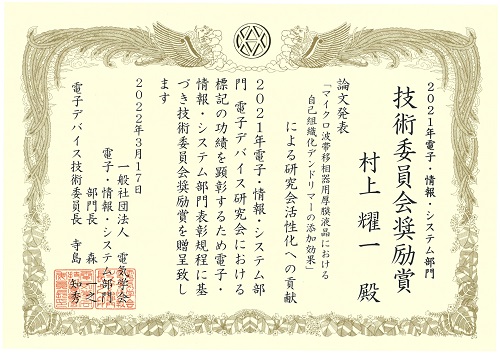 2021年電子・情報・システム部門
技術委員会奨励賞
村上 耀一 殿
論文発表
「マイクロ波帯移相器用厚膜液晶における
自己組織化デンドリマーの添加効果」
による研究会活性化への貢献
2021年電子・情報・システム部
門 電子デバイス研究会における
標記の功績を顕彰するため電子・
情報・システム部門表彰規程に基
づき技術委員会奨励賞を贈呈致し
ます
2022年3月17日
一般社団法人 電気学会
電子・情報・システム部門
部門長 森 一之
電子デバイス技術委員長 寺島 知秀